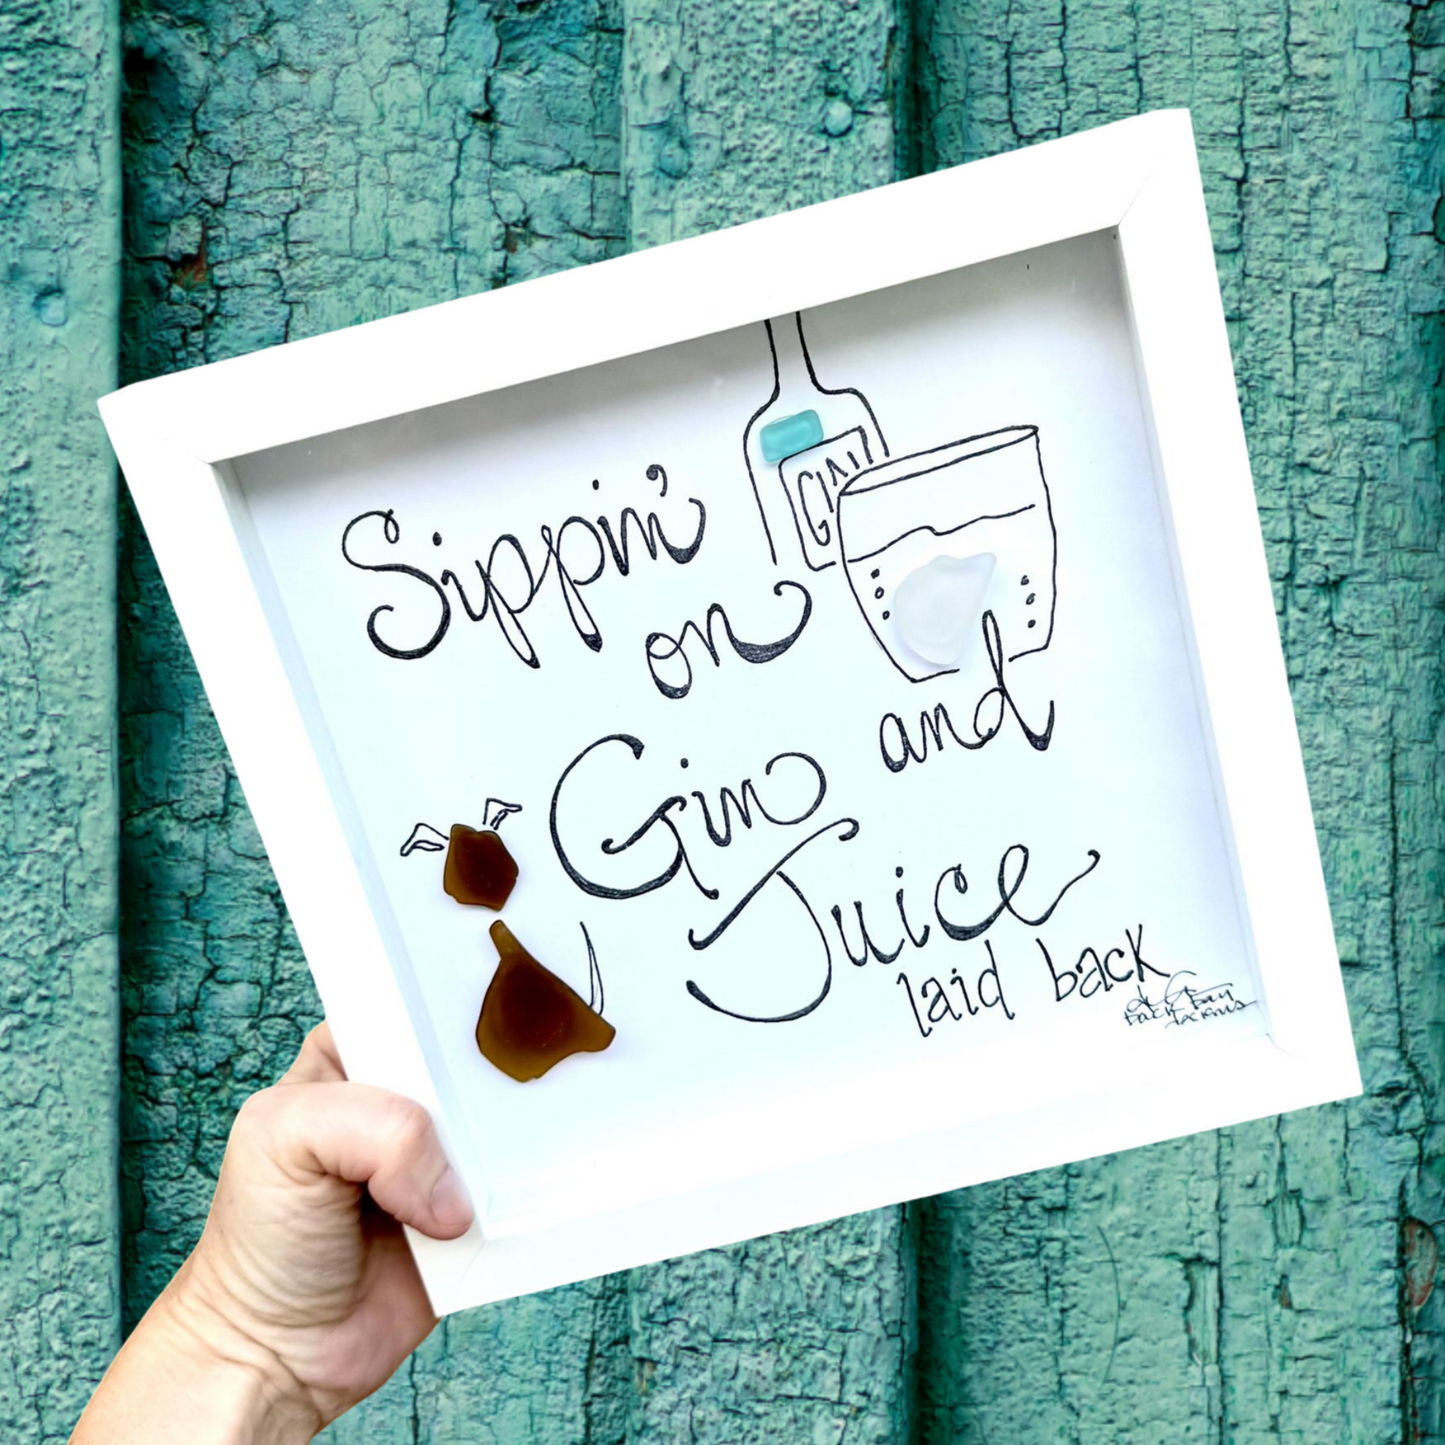 GIN
Sippin'
on
and
Gin
Juice
laid back
Back Bay